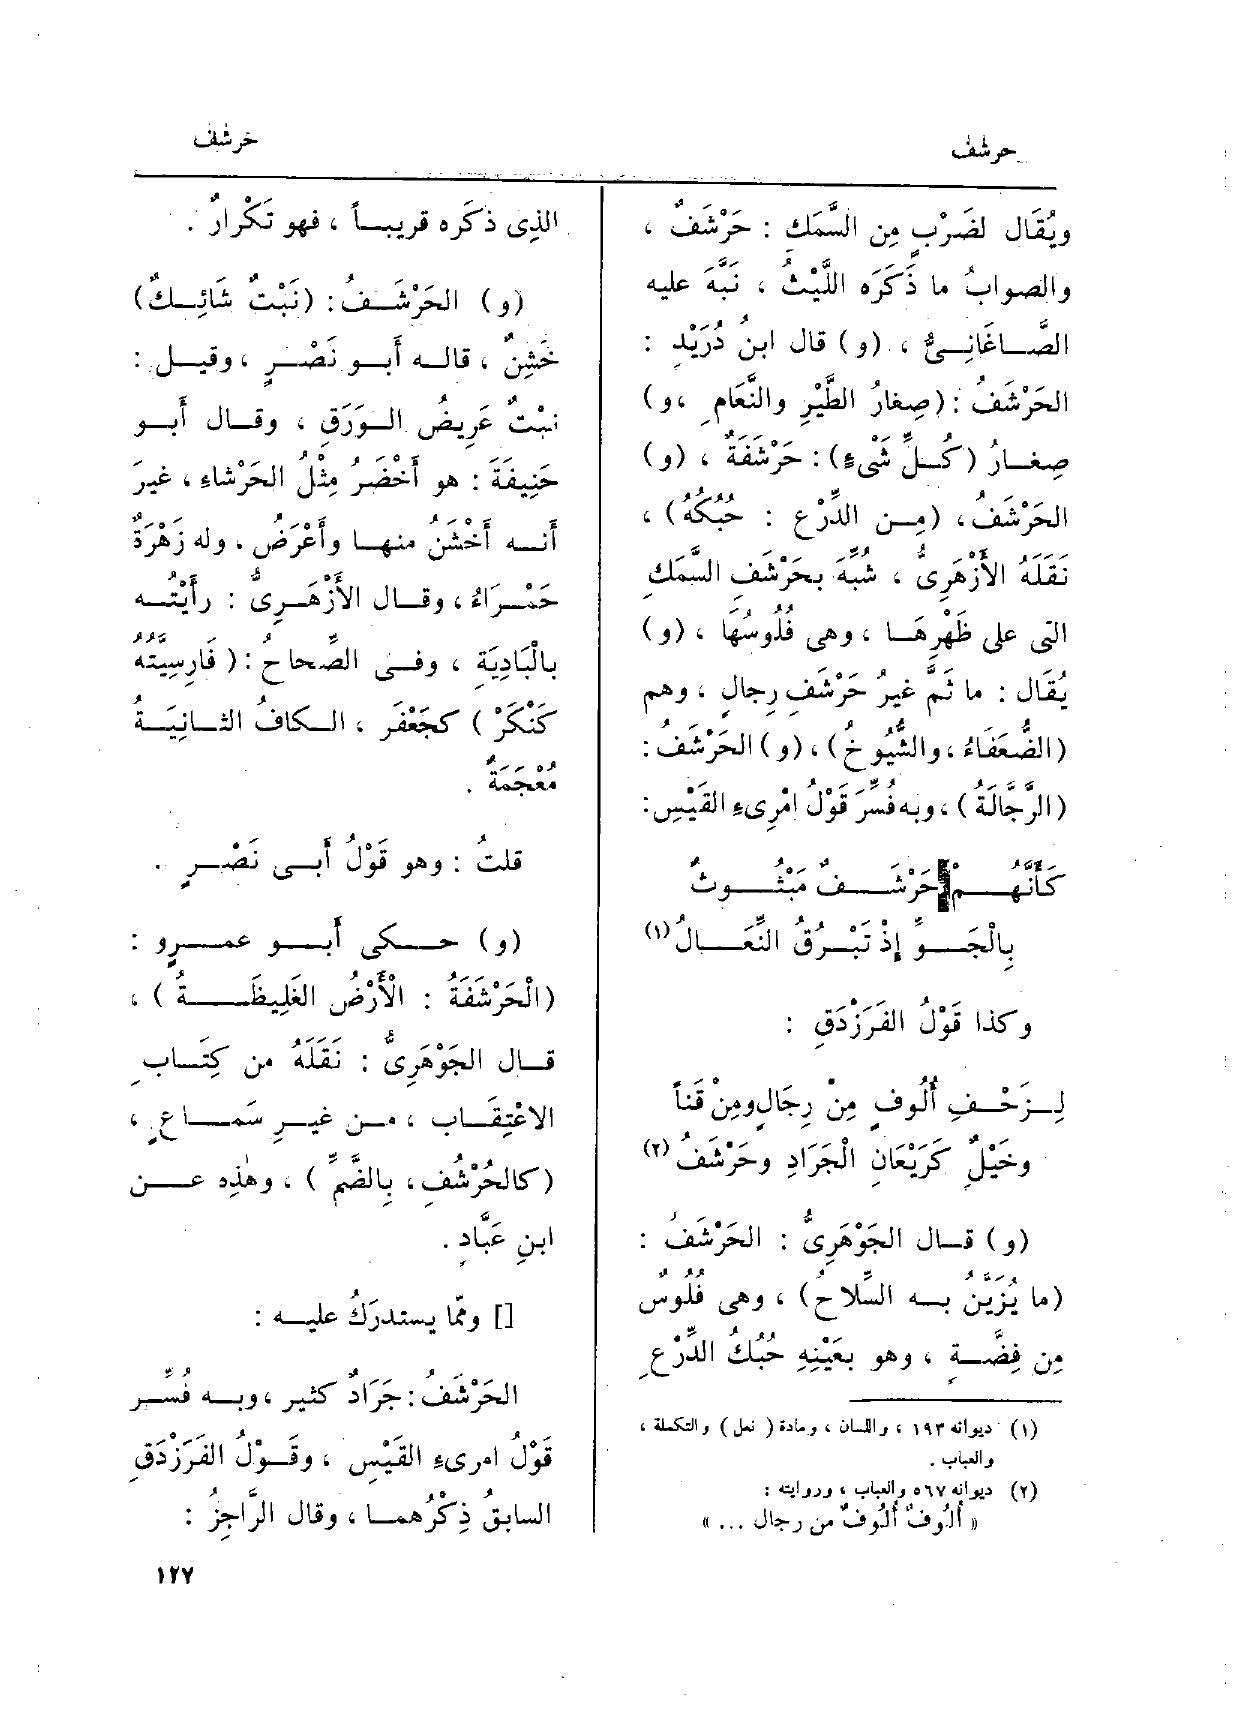 حرشف
خرشف
ويُقَال لضَرْبٍ مِن السَّمَكِ : حَرْشَفٌ ،
والصوابُ ما ذَكَرَه اللَّيْثُ ، نَبَّهَ عليه
الصَّاغَانِيُّ ، (و) قال ابنُ دُرَيْدٍ :
الحَرْشَفُ : (صِغارُ الطَّيْرِ والنَّعَامِ ،و)
صِغارُ (كُلِّ شَيْءٍ) : حَرْشَفَةٌ ، (و)
الحَرْشَفُ، (مِن الدِّرْعِ : حُبُكُهُ) ،
نَقَلَهُ الأَزْهَرِىُّ ، شُبِّهَ بحَرْشَفِ السَّمَكِ
التى على ظَهْرِهَا ، وهى فُلُوسُهَا ، (و)
يُقَال : ما ثَمَّ غيرُ حَرْشَفِ رِجالٍ ، وهم
(الضُّعَفَاءُ ، والشُّيُوخُ) ، (و) الحَرْشَفُ :
(الرَّجَّالَةُ) ، وبه فُسِّرَ قَوْلُ امْرِىءِ القَيْسِ:
كَأَنَّهُمْ حَرْشَفٌ مَبْثُوثٌ
بِالْجَوِّ إِذْ تَبْرُقُ النِّعَالُ (١)
وكذا قَوْلُ الفَرَزْدَقِ :
لِزَحْفِ أُلُوفٍ مِنْ رِجَالٍ ومِنْ قَناً
وخَيْلٌ كَرَيْعَانِ الْجَرَادِ وحَرْشَفُ (٢)
(و) قال الجَوْهَرِىُّ : الحَرْشَفُ :
(ما يُزَيَّنُ به السِّلاحُ) ، وهى فُلُوسٌ
مِن فِضَّةٍ ، وهو بعَيْنِهِ حُبُكُ الدِّرْعِ
(١) ديوانه ١٩٣ ، واللسان ، ومادة ( نعل ) والتكملة ،
والعباب .
(٢) ديوانه ٥٦٧ والعباب ، وروايته :
« أُلُوفٌ أُلُوفٌ من رجال ... »
الذِى ذَكَره قريباً ، فهو تَكْرارٌ .
(و) الحَرْشَفُ : (نَبْتٌ شَائِكٌ)
خَشِنٌ ، قاله أَبو نَصْرٍ ، وقيل :
نبْتٌ عَرِيضُ الوَرَقِ ، وقال أَبو
حَنِيفَةَ : هو أَخْضَرُ مِثْلُ الحَرْشاءِ ، غيرَ
أَنه أَخْشَنُ منها وأَعْرَضُ ، وله زَهْرَةٌ
حَمْرَاءُ ، وقال الأَزْهَرِىُّ : رأَيْتُه
بالْبَادِيَةِ ، وفى الصِّحاحُ : ( فَارِسِيَّتُهُ
كَنْكَرْ ) كجَعْفَرٍ ، الكافُ الثانِيَةُ
مُعْجَمَةٌ .
قلتُ : وهو قَوْلُ أَبى نَصْرٍ .
(و) حكى أَبو عمرو :
(الْحَرْشَفَةُ : الأَرْضُ الغَلِيظَةُ ) ،
قال الجَوْهَرِىُّ : نَقَلَهُ من كِتَابِ
الاعْتِقَابِ ، من غيرِ سَمَاعٍ ،
(كالحُرْشُفِ، بِالضَّمِّ ) ، وهٰذِه عن
ابنِ عَبَّادٍ .
[] وممّا يستدرَكُ عليه :
الحَرْشَفُ : جَرَادٌ كثير ، وبه فُسِّر
قَوْلُ امرىءِ القَيْسِ ، وقَوْلُ الفَرَزْدَقِ
السابقُ ذِكْرُهما ، وقال الرَّاجِزُ :
١٢٧